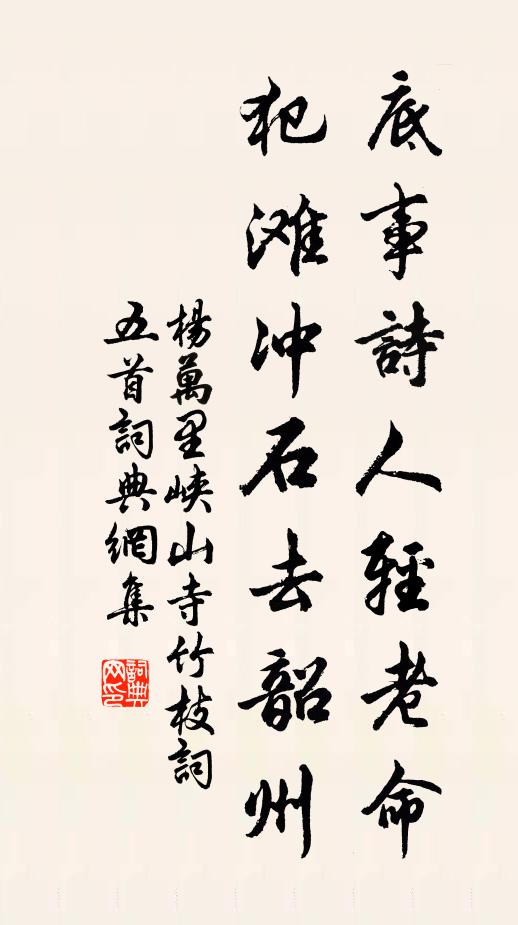 底事詩人輕老命
犯滩冲石去韶州
楊萬里峽山寺竹枝詞
五首詞典網集
詞典网印